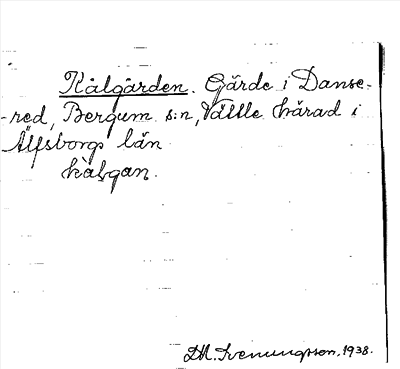 Kålgården. Gärde i Danse-
red, Bergum s:n, Vättle härad i
Älfsborgs län
kàlgan.
1938.